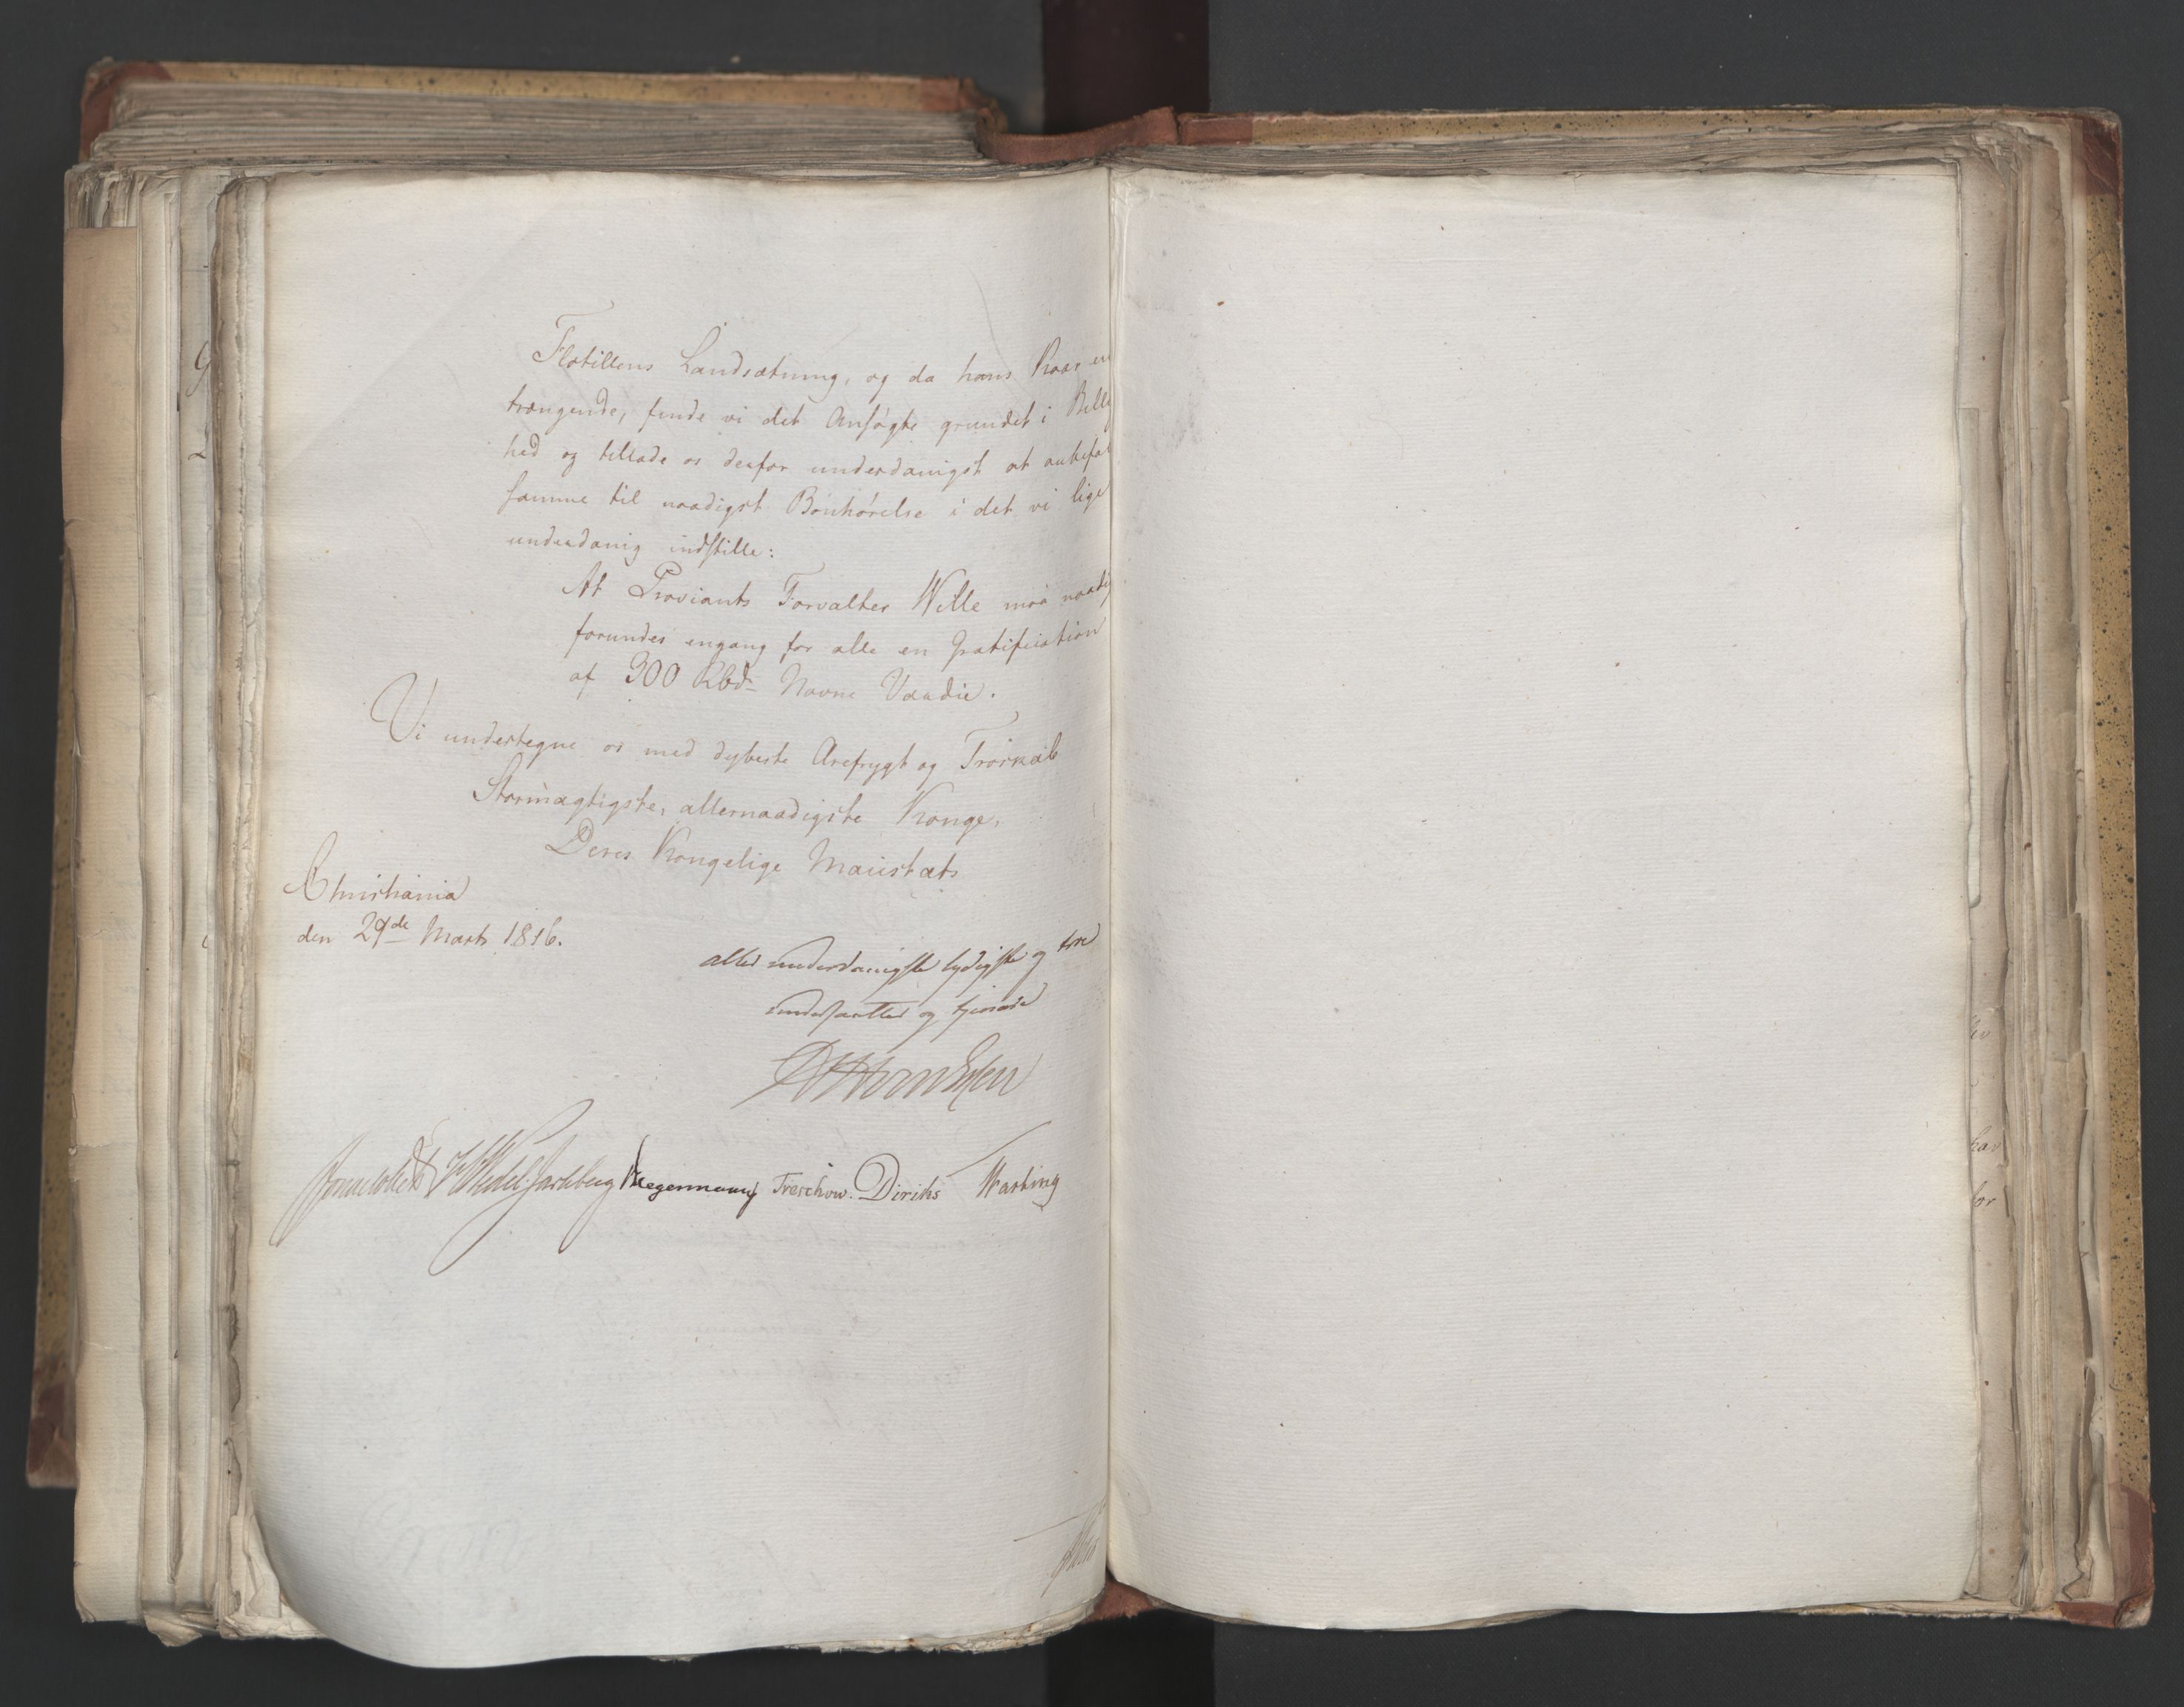 Flotillens Landsætning, og da hans Kaar er
trængende, finde vi det Ansøgte grundet i Billig
hed og tillade os derfor underdanigst at anbefal
samme til naadigst Bønhørelse i det vi lige
underdanig indstille:
At Proviants Forvalter Wille maa naadig
forundes engang for alle en Gratification
af 300 Rbd Navne Værdie.
Vi undertegne os med dybeste Ærefrygt og Troskab
Stormægtigste, allernaadigste Konge,
Deres Kongelige Maiestæts
Christiania
den 29de Marts 1816.
aller underdanigste lydigste og troe
undersaatter og tjenere
Sommerhielm Wedel Jarlsberg Hegermann Treschow. Diriks Wasting